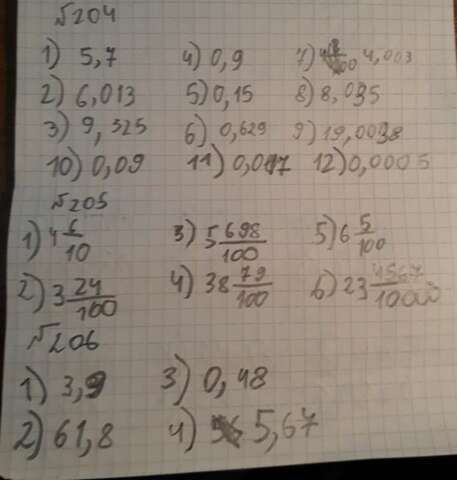 №204
1) 5,7 4) 0,9 7) 4,003
2) 6,013 5) 0,15 8) 8,035
3) 9,325 6) 0,629 9) 19,0038
10) 0,09 11) 0,017 12) 0,0005
№205
1) 4 6/10 3) 5 698/100 5) 6 5/100
2) 3 24/100 4) 38 79/100 6) 23 4567/10000
№206
1) 3,9 3) 0,48
2) 61,8 4) 5,67